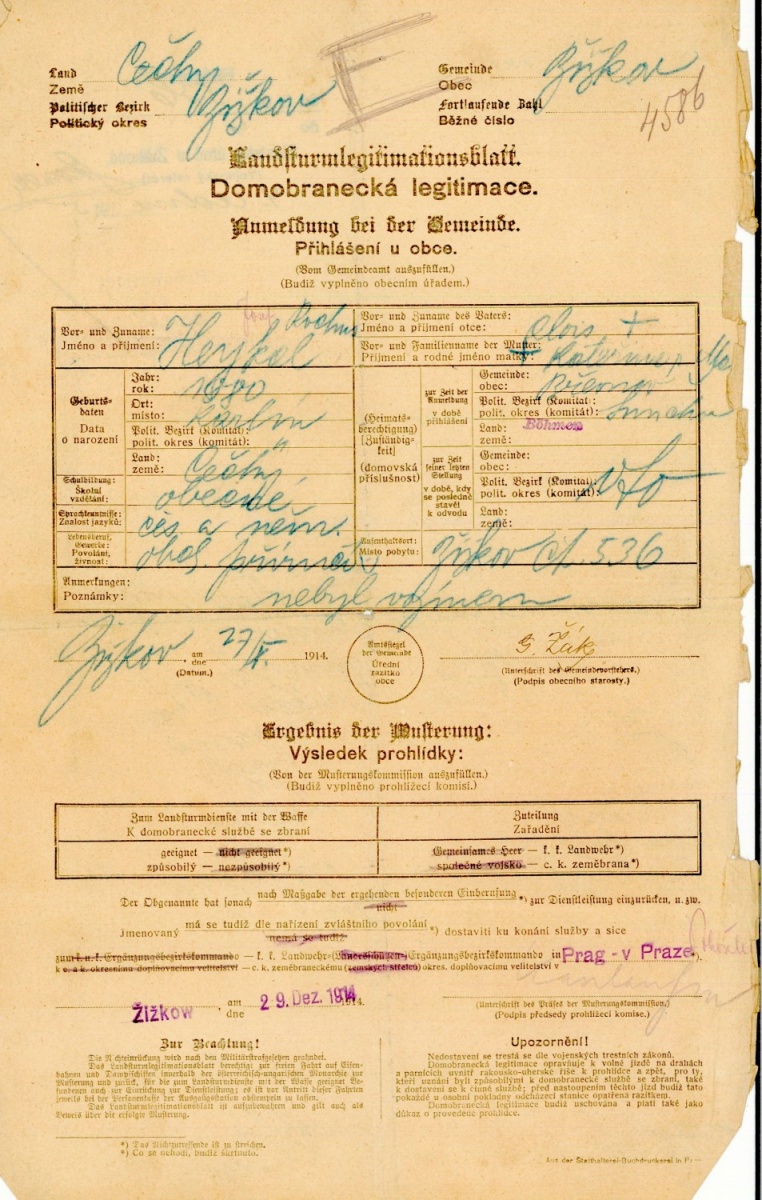 Land
Země Čechy
Gemeinde
Obec Žižkov
Politischer Bezirk
Politický okres Žižkov
Fortlaufende Zahl
Běžné číslo 4586
E
Landsturmlegitimationsblatt.
Domobranecká legitimace.
Anmeldung bei der Gemeinde.
Přihlášení u obce.
(Vom Gemeindeamt auszufüllen.)
(Budiž vyplněno obecním úřadem.)
Vor- und Zuname:
Jméno a přijmení:
Josef
Heykal
Vor- und Zuname des Vaters:
Jméno a přijmení otce: Alois +
Vor- und Familienname der Mutter:
Přijmení a rodné jméno matky:
Geburts-
daten
Data
o narození
Jahr:
rok: 1880
Ort:
místo:
Polit. Bezirk (Komitat):
polit. okres (komitát): "
Land:
země: Čechy
Schulbildung:
Školní
vzdělání: obecné
Sprachkenntnisse:
Znalost jazyků: čes a něm.
Lebensberuf,
Gewerbe:
Povolání,
živnost: obch.
(Heimats-
berechtigung)
[Zuständig-
keit]
(domovská
příslušnost)
zur Zeit der
Anmeldung
v době
přihlášení
Gemeinde:
obec:
Polit. Bezirk (Komitat):
polit. okres (komitát):
Land:
země: Böhmen
zur Zeit
seiner letzten
Stellung
v době, kdy
se posledně
stavěl
k odvodu
Gemeinde:
obec:
Polit. Bezirk (Komitat):
polit. okres (komitát):
Land:
země:
Aufenthaltsort:
Místo pobytu: Žižkov čp. 536
Anmerkungen:
Poznámky: nebyl vojínem
Žižkov am
dne 27/X. 1914.
(Datum.)
Amtssiegel
der Gemeinde
Úřední
razítko
obce
G. Žák
(Unterschrift des Gemeindevorstehers.)
(Podpis obecního starosty.)
Ergebnis der Musterung:
Výsledek prohlídky:
(Von der Musterungskommission auszufüllen.)
(Budiž vyplněno prohlížecí komisí.)
Zum Landsturmdienste mit der Waffe
K domobranecké službě se zbraní
Zuteilung
Zařadění
geeignet — nicht geeignet*)
způsobilý — nezpůsobilý*)
Gemeinsames Heer — k. k. Landwehr*)
společné vojsko — c. k. zeměbrana*)
Der Obgenannte hat sonach nach Maßgabe der ergehenden besonderen Einberufung
nicht *) zur Dienstleistung einzurücken, u. zw.
Jmenovaný má se tudíž dle nařízení zvláštního povolání
nemá se tudíž *) dostaviti ku konání služby a sice
zum k. u. k. Ergänzungsbezirkskommando — k. k. Landwehr-(Landesschützen-)Ergänzungsbezirkskommando in Prag - v Praze *),
k c. a k. okresnímu doplňovacímu velitelství — c. k. zeměbraneckému (zemských střelců) okres. doplňovacímu velitelství v
ŽIŽKOW, am
dne 29. Dez. 1914 1914.
(Unterschrift des Präses der Musterungskommission.)
(Podpis předsedy prohlížecí komise.)
Zur Beachtung!
Die Nichteinrückung wird nach den Militärstrafgesetzen geahndet.
Das Landsturmlegitimationsblatt berechtigt zur freien Fahrt auf Eisen-
bahnen und Dampfschiffen innerhalb der österreichisch-ungarischen Monarchie zur
Musterung und zurück, für die zum Landsturmdienste mit der Waffe geeignet Be-
fundenen auch zur Einrückung zur Dienstleistung; es ist vor Antritt dieser Fahrten
jeweils bei der Personenkasse der Ausgangsstation abstempeln zu lassen.
Das Landsturmlegitimationsblatt ist aufzubewahren und gilt auch als
Beweis über die erfolgte Musterung.
Upozornění!
Nedostavení se trestá se dle vojenských trestních zákonů.
Domobranecká legitimace opravňuje k volné jízdě na drahách
a parnících uvnitř rakousko-uherské říše k prohlídce a zpět, pro ty,
kteří uznáni byli způsobilými k domobranecké službě se zbraní, také
k dostavení se k činné službě; před nastoupením těchto jízd budiž tato
pokaždé u osobní pokladny odchozí stanice opatřena razítkem.
Domobranecká legitimace budiž uschována a platí také jako
důkaz o provedené prohlídce.
*) Das Nichtzutreffende ist zu streichen.
*) Co se nehodí, budiž škrtnuto.
Aus der Statthalterei-Buchdruckerei in